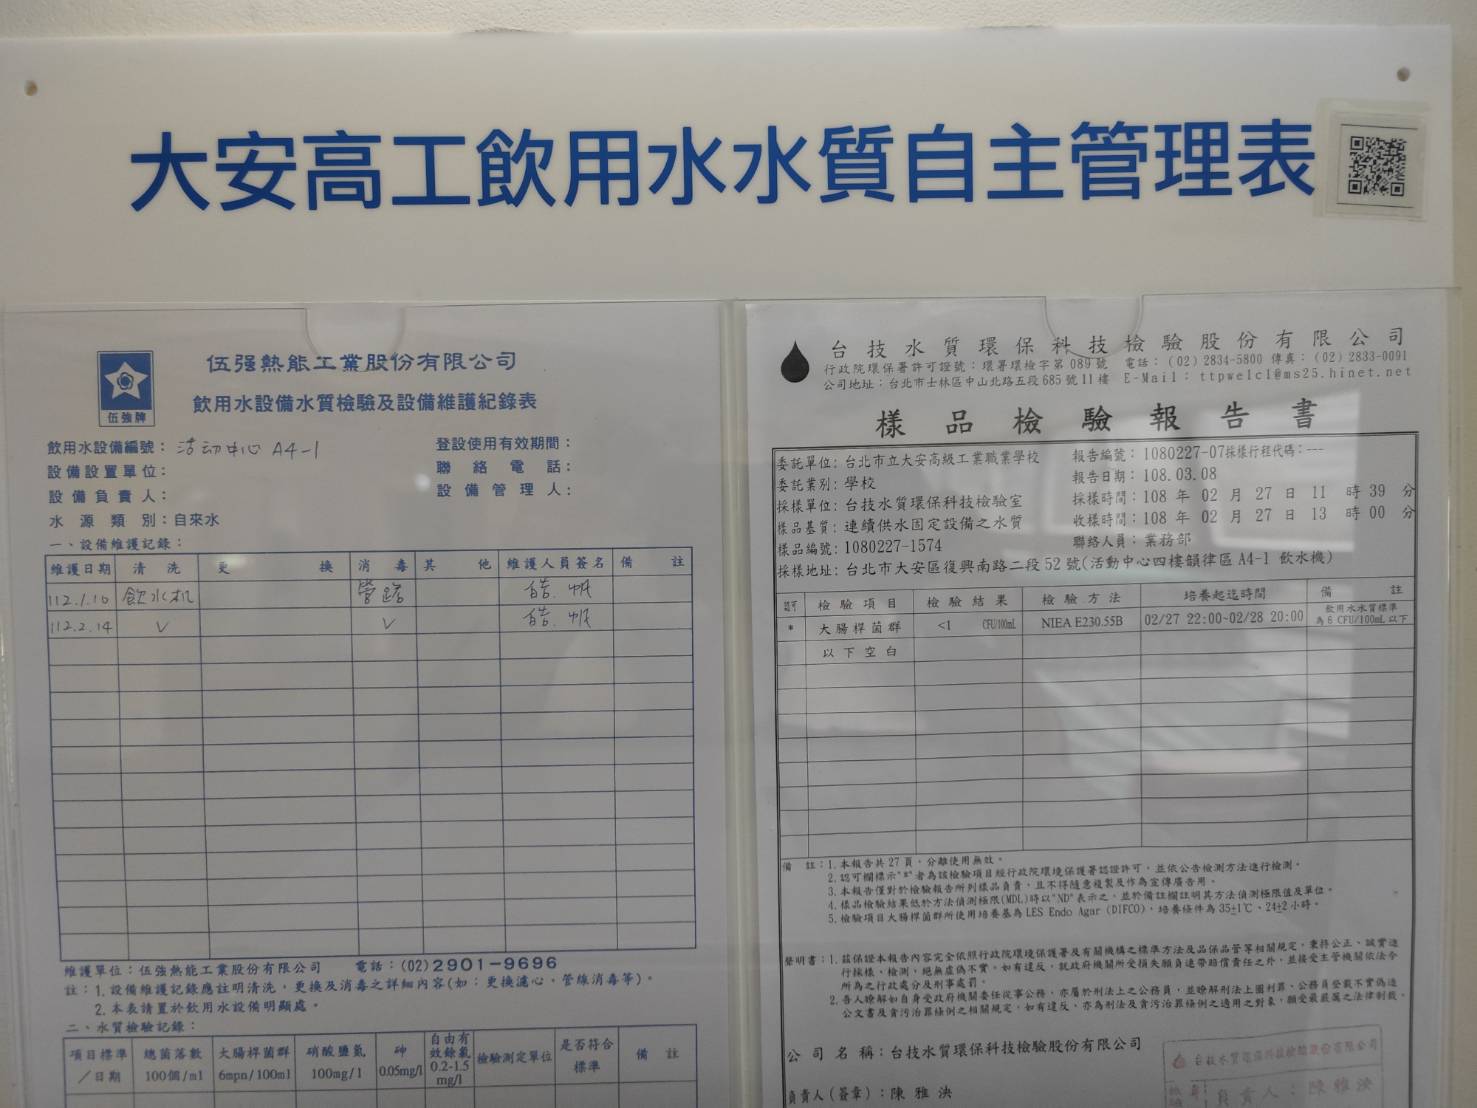 大安高工飲用水水質自主管理表
伍強牌
伍强熱能工業股份有限公司
飲用水設備水質檢驗及設備維護紀錄表
飲用水設備編號：活动中心 A4-1
登設使用有效期間：
設備設置單位：
聯絡電話：
設備負責人：
設備管理人：
水源類別：自來水
一、設備維護記錄：
維護日期 清洗 更換 消毒 其他 維護人員簽名 備註
112.1.10 飲水机 管路
112.2.14 V V
維護單位：伍強熱能工業股份有限公司 電話：(02)2901-9696
註：1.設備維護記錄應註明清洗，更換及消毒之詳細內容(如：更換濾心、管線消毒等)。
2.本表請置於飲用水設備明顯處。
二、水質檢驗記錄：
項目標準／日期 總菌落數 100個/ml 大腸桿菌群 6mpn/100ml 硝酸鹽氮 100mg/l 砷 0.05mg/l 自由有效餘氯 0.2-1.5 mg/l 檢驗測定單位 是否符合標準 備註
台技水質環保科技檢驗股份有限公司
行政院環保署許可證號：環署環檢字第089號 電話：(02)2834-5800 傳真：(02)2833-0091
公司地址：台北市士林區中山北路五段685號11樓 E-Mail：ttpwelcl@ms25.hinet.net
樣品檢驗報告書
委託單位：台北市立大安高級工業職業學校 報告編號：1080227-07採樣行程代碼：---
委託業別：學校 報告日期：108.03.08
採樣單位：台技水質環保科技檢驗室 採樣時間：108 年 02 月 27 日 11 時 39 分
樣品基質：連續供水固定設備之水質 收樣時間：108 年 02 月 27 日 13 時 00 分
樣品編號：1080227-1574 聯絡人員：業務部
採樣地址：台北市大安區復興南路二段52號(活動中心四樓韻律區 A4-1 飲水機)
認可 檢驗項目 檢驗結果 檢驗方法 培養起迄時間 備註
* 大腸桿菌群 <1 CFU/100mL NIEA E230.55B 02/27 22:00~02/28 20:00 飲用水水質標準為6 CFU/100mL以下
以下空白
備註：1.本報告共27頁，分離使用無效。
2.認可欄標示"*"者為該檢驗項目經行政院環境保護署認證許可，並依公告檢測方法進行檢測。
3.本報告僅對於檢驗報告所列樣品負責，且不得隨意複製及作為宣傳廣告用。
4.樣品檢驗結果低於方法偵測極限(MDL)時以"ND"表示之，並於備註欄註明其方法偵測極限值及單位。
5.檢驗項目大腸桿菌群所使用培養基為LES Endo Agar (DIFCO)，培養條件為35±1℃、24±2小時。
聲明書：1.茲保證本報告內容完全依照行政院環境保護署及有關機構之標準方法及品保品管等相關規定，秉持公正、誠實進
行採樣、檢測，絕無虛偽不實，如有違反，就政府機關所受損失願負連帶賠償責任之外，並接受主管機關依法令
所為之行政處分及刑事處罰。
2.吾人瞭解如自身受政府機關委任從事公務，亦屬於刑法上之公務員，並瞭解刑法上圖利罪、公務員登載不實偽造
公文書及貪污治罪條例之相關規定，如有違反，亦為刑法及貪污治罪條例之適用之對象，願受最嚴厲之法律制裁。
公司名稱：台技水質環保科技檢驗股份有限公司
台技水質環保科技檢驗股份有限公司
負責人(簽章)：陳雅泱
負責人：陳雅泱